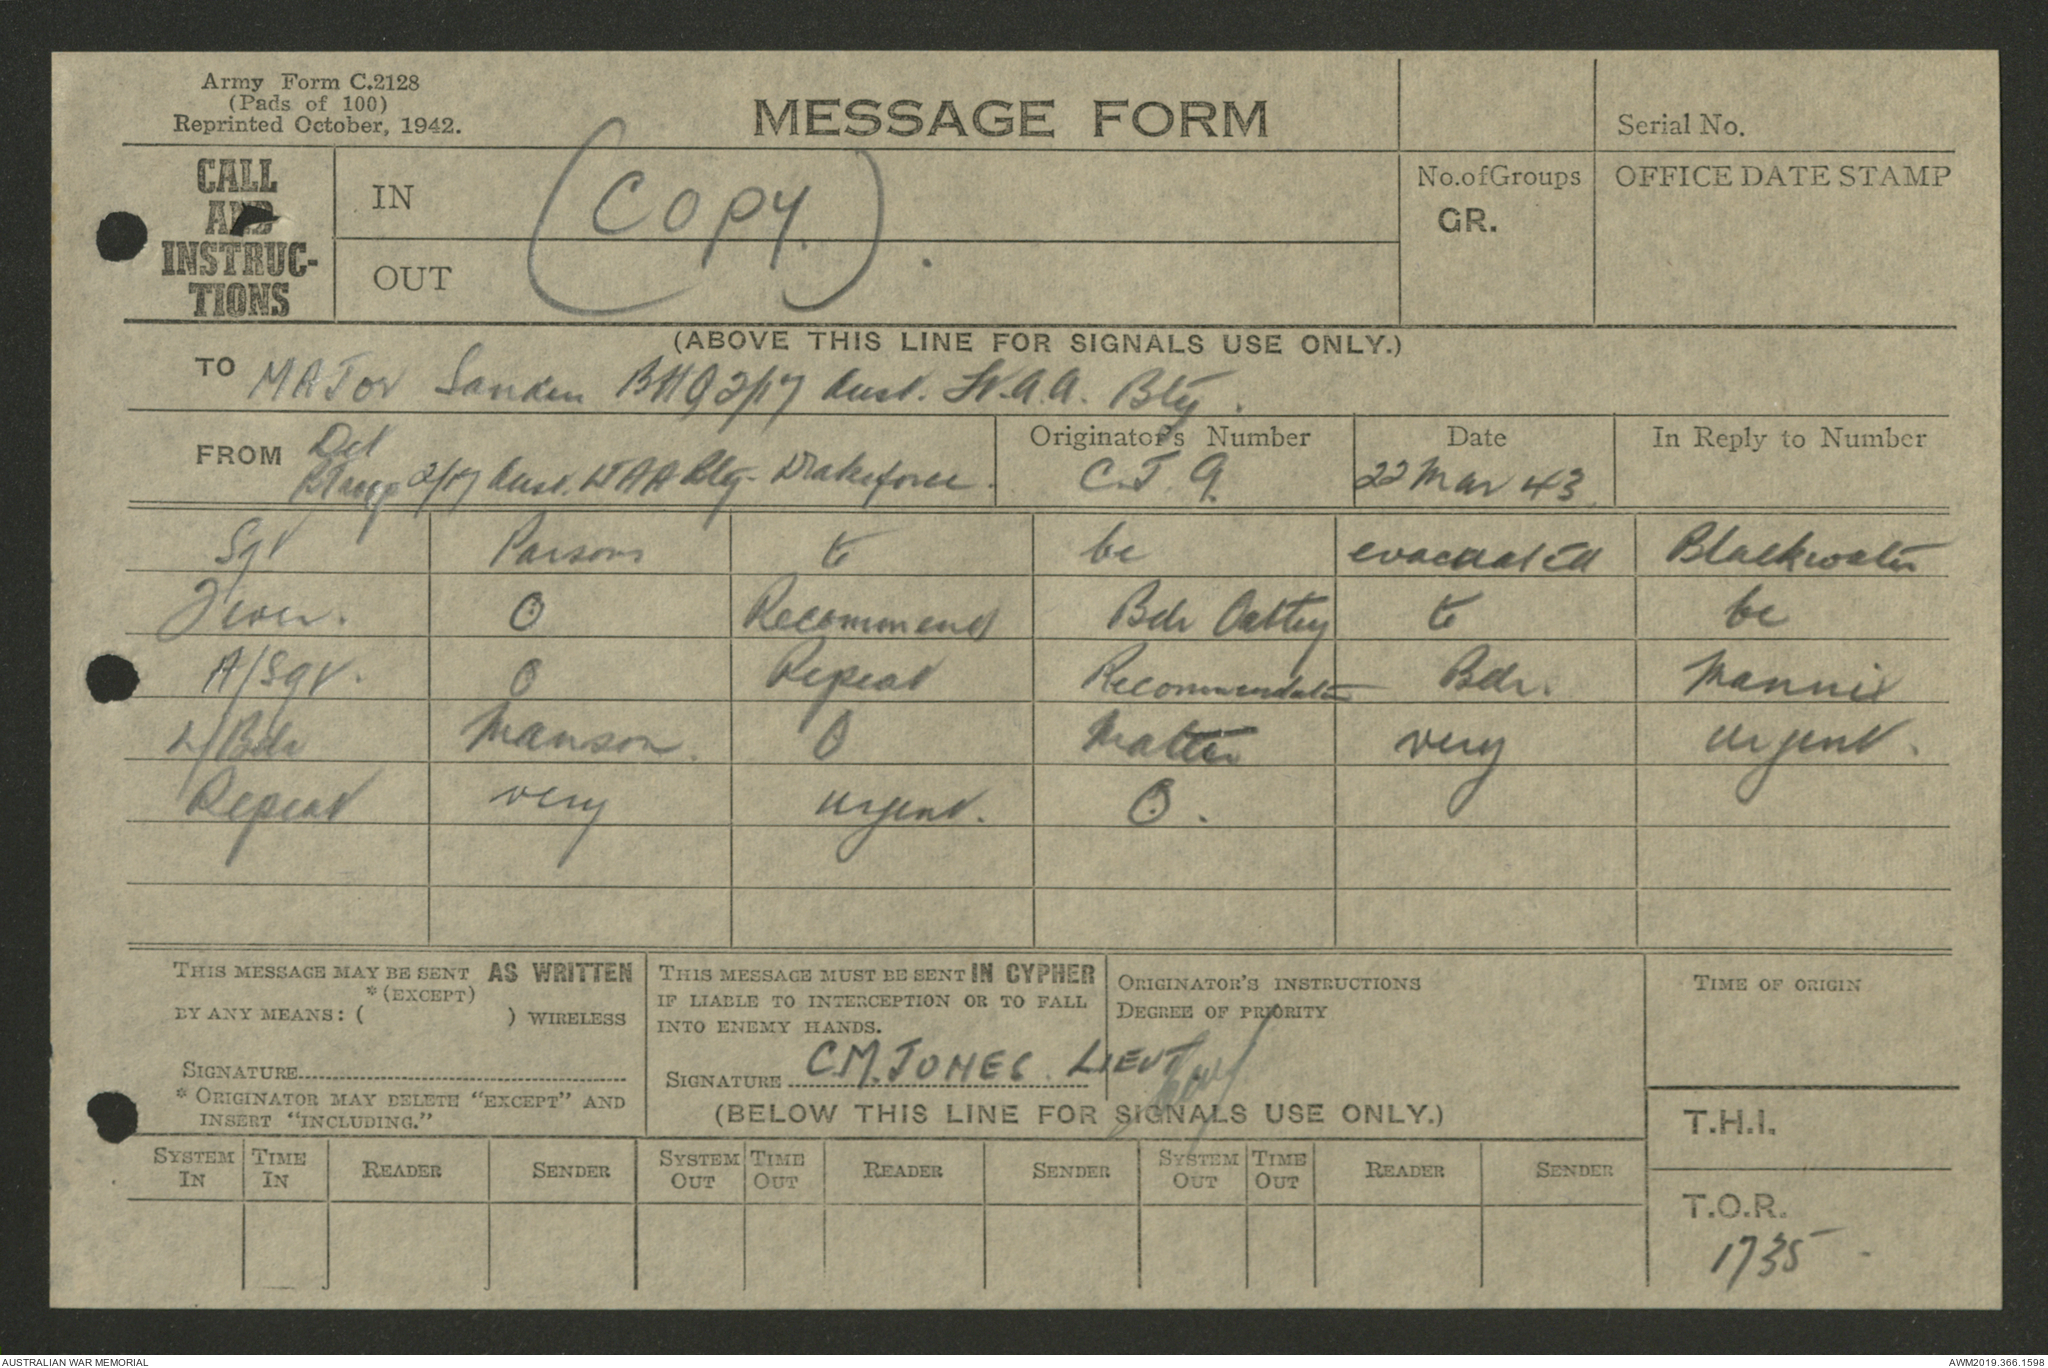 Army Form C.2128
(Pads of 100)
Reprinted October, 1942.
MESSAGE FORM
Serial No.
CALL AND INSTRUC-TIONS
IN
(Copy.)
OUT
No.ofGroups
GR.
OFFICE DATE STAMP
(ABOVE THIS LINE FOR SIGNALS USE ONLY.)
TO MAJor Sanden BHQ 2/17 Aust. Lt.A.A. Bty.
FROM Det 2/17 Aust. Lt AA Bty. Drakeforce.
Originator's Number
C.J.9.
Date
22 Mar 43
In Reply to Number
Sgt Parsons to be evacuated Blackwater
Fever. O Recommend Bdr to be
A/Sgt. O Repeat Recommendate Bdr. Mannix
L/Bdr Manson. O Matter very urgent.
Repeat very urgent. O.
THIS MESSAGE MAY BE SENT AS WRITTEN
*(EXCEPT)
BY ANY MEANS: ( ) WIRELESS
SIGNATURE
* ORIGINATOR MAY DELETE "EXCEPT" AND
INSERT "INCLUDING."
THIS MESSAGE MUST BE SENT IN CYPHER
IF LIABLE TO INTERCEPTION OR TO FALL
INTO ENEMY HANDS.
SIGNATURE C.M. JONES. LIEUT
ORIGINATOR'S INSTRUCTIONS
DEGREE OF PRIORITY
TIME OF ORIGIN
(BELOW THIS LINE FOR SIGNALS USE ONLY.)
T.H.I.
SYSTEM IN TIME IN READER SENDER SYSTEM OUT TIME OUT READER SENDER SYSTEM OUT TIME OUT READER SENDER
T.O.R.
1735
AUSTRALIAN WAR MEMORIAL
AWM2019.366.1598